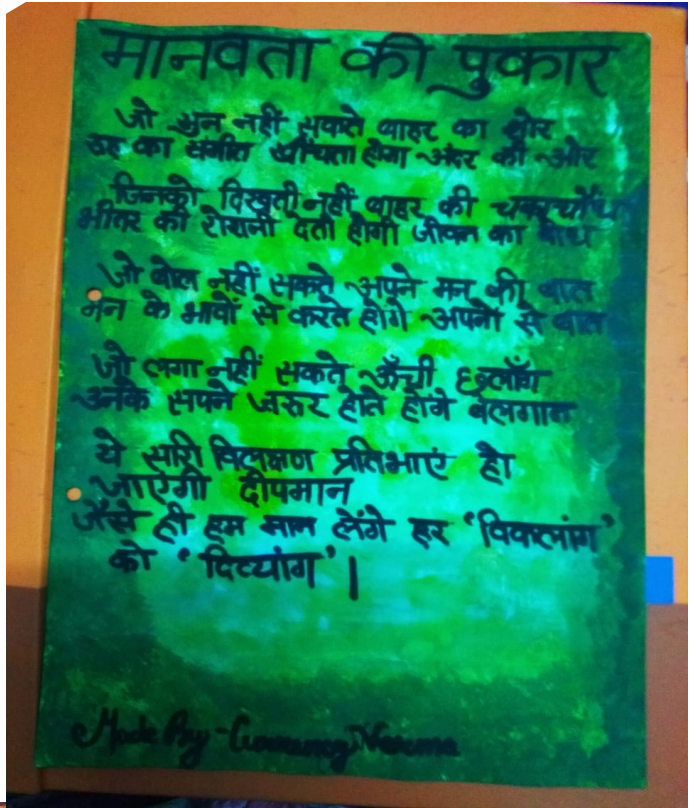 मानवता की पुकार
जो सुन नहीं सकते बाहर का शोर
रुह का संगीत खींचता होगा अंदर की ओर
जिनको दिखती नहीं बाहर की चकाचौंध
भीतर की रोशनी देती होगी जीवन का बोध
जो बोल नहीं सकते अपने मन की बात
मन के भावों से करते होंगे अपनों से बात
जो लगा नहीं सकते ऊँची छलाँग
उनके सपने जरूर होते होंगे बेलगाम
ये सारी विलक्षण प्रतिभाएं हो
जाएंगी दीपमान
जैसे ही हम मान लेंगे हर ‘विकलांग’
को ‘दिव्यांग’।
Made By - Verma